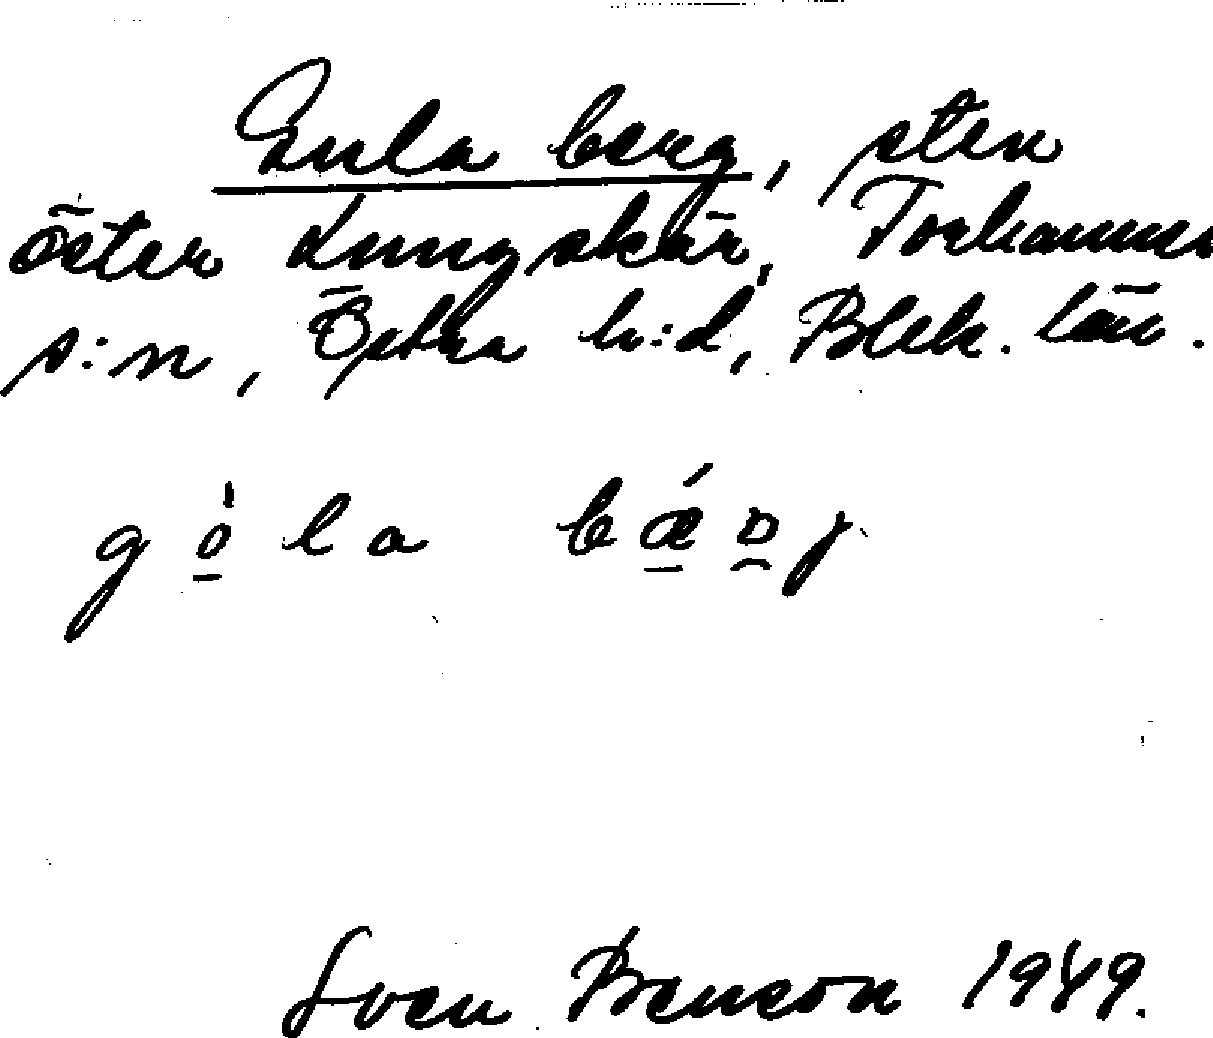 Gula berg, sten
öster Kungskär, Torhamns
s:n, Östra h:d, Blek. län.
gòla bǽrj
Sven Benson 1949.